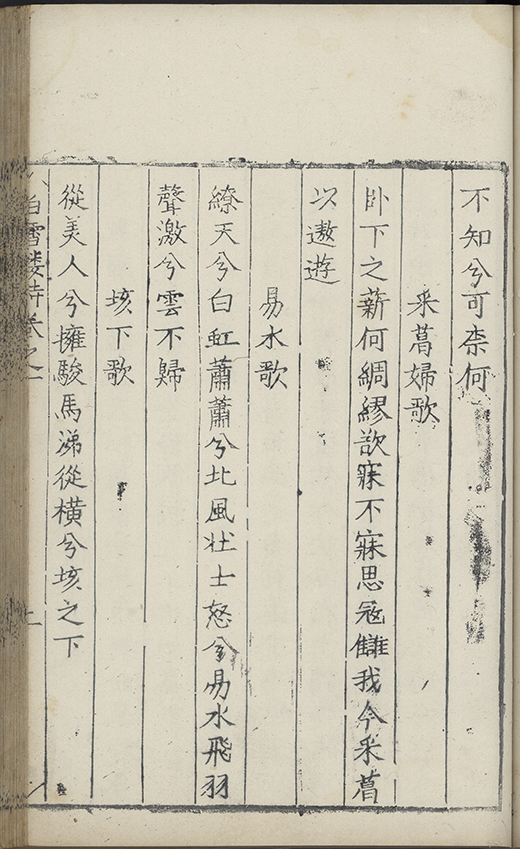 不知兮可柰何
采葛婦歌
卧下之薪何綢繆欲寐不寐思冠讎我今采葛
以遨遊
易水歌
繚天兮白虹蕭蕭兮北風壯士怒兮易水飛羽
聲激兮雲不歸
垓下歌
從美人兮擁駿馬涕從橫兮垓之下
白雪樓詩卷之一